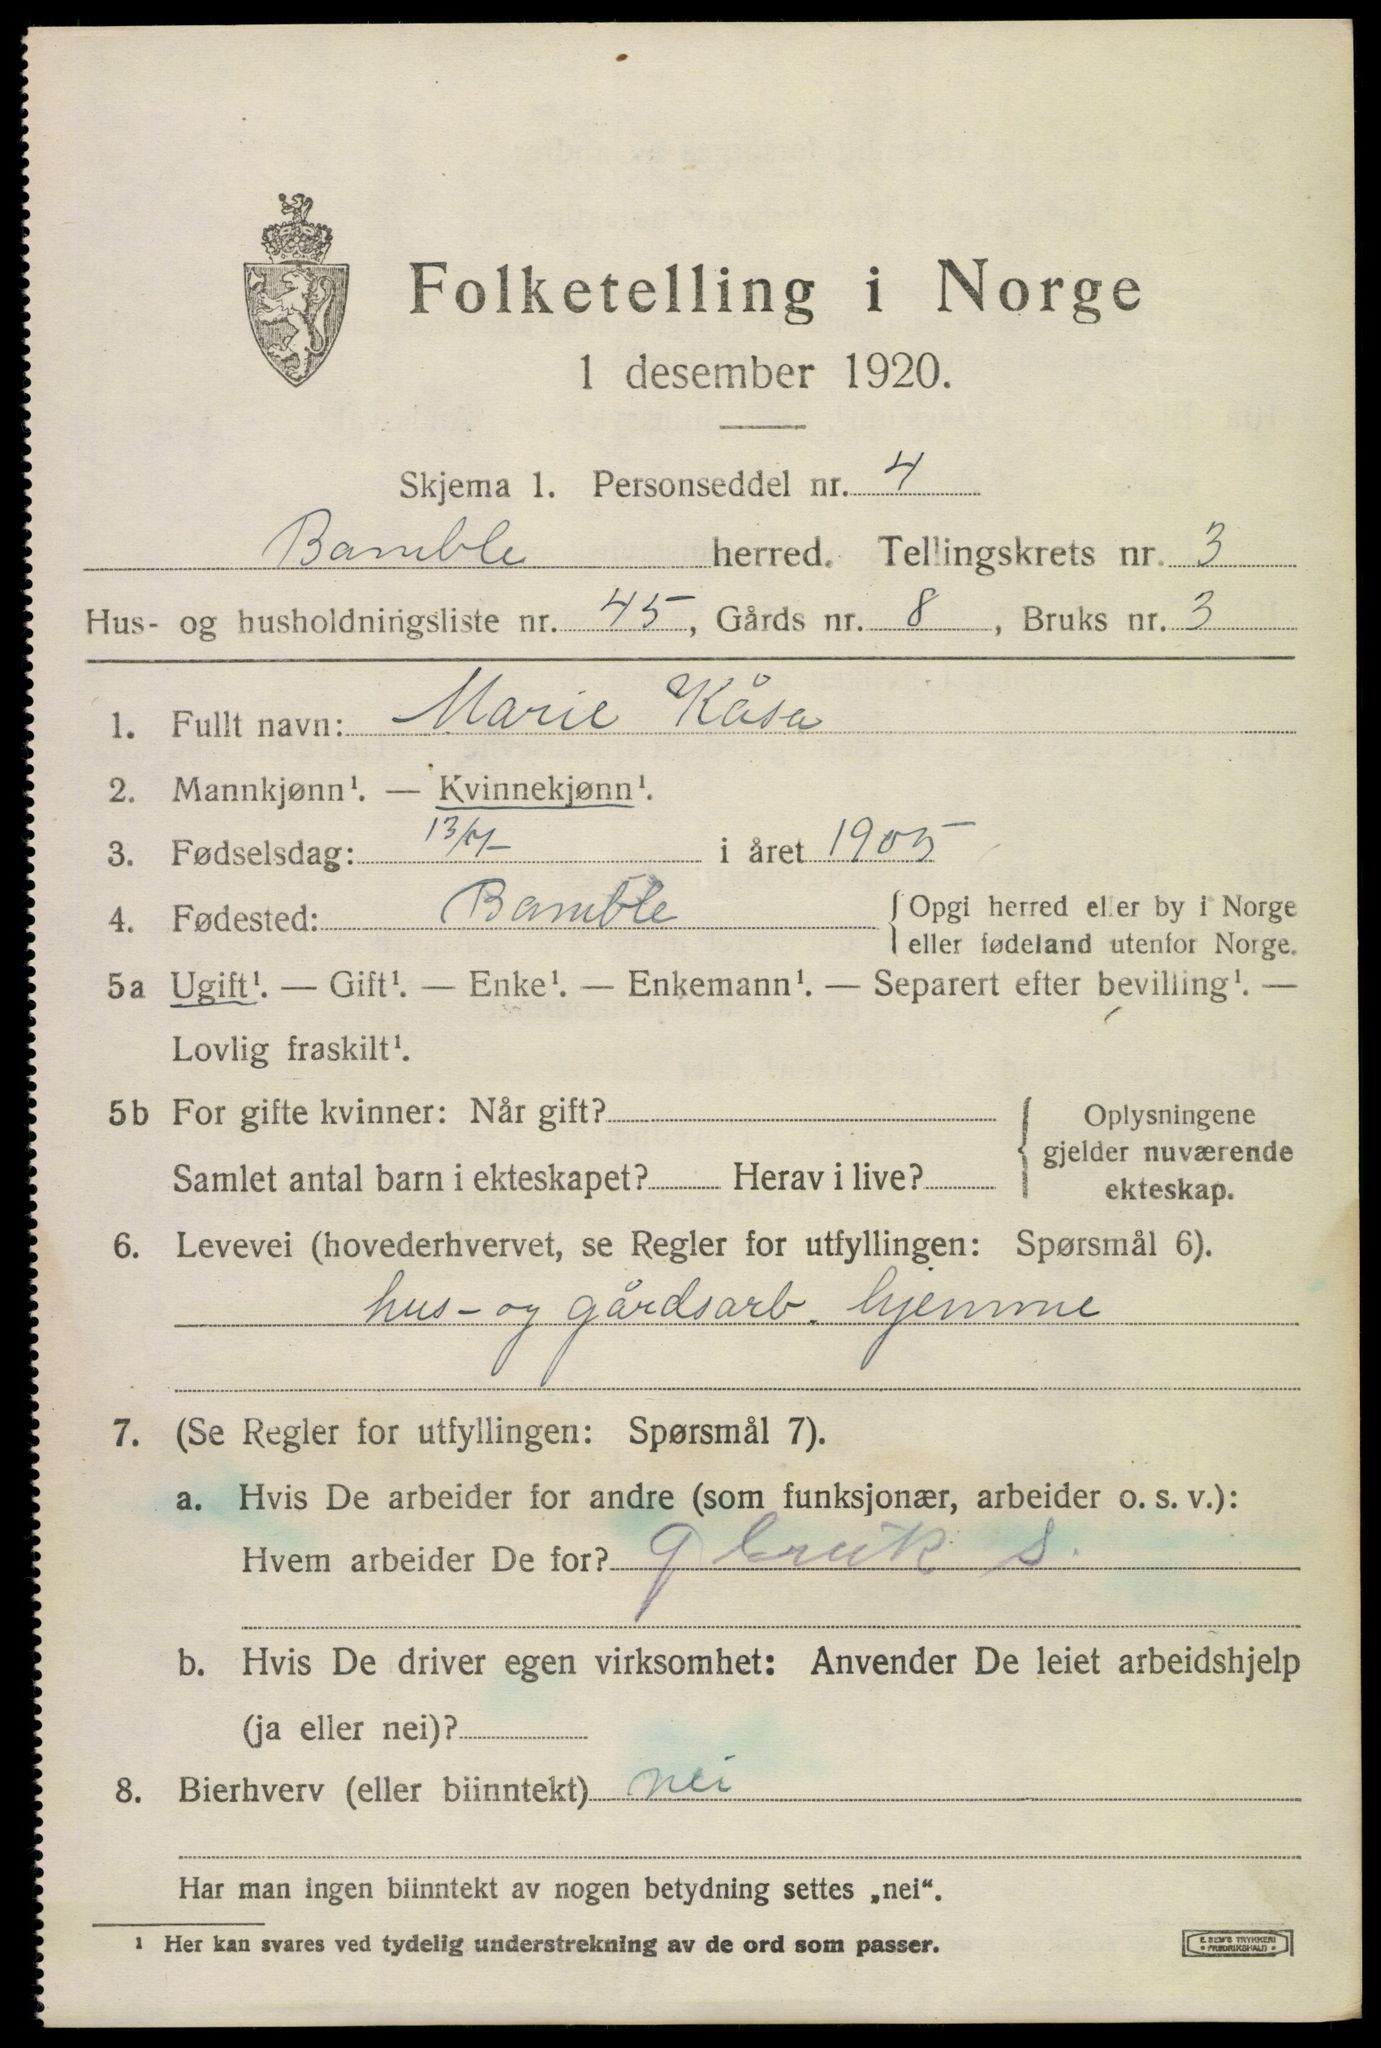 Folketelling i Norge
1 desember 1920.
Skjema 1. Personseddel nr. 4
Bamble herred. Tellingskrets nr. 3
Hus- og husholdningsliste nr. 45, Gårds nr. 8, Bruks nr. 3
1. Fullt navn: Marie Kåsa
2. Mannkjønn¹. — Kvinnekjønn¹.
3. Fødselsdag: 13/4 i året 1905
4. Fødested: Bamble {Opgi herred eller by i Norge
eller fødeland utenfor Norge.
5a Ugift¹. — Gift¹. — Enke¹. — Enkemann¹. — Separert efter bevilling¹. —
Lovlig fraskilt¹.
5b For gifte kvinner: Når gift? { Oplysningene
gjelder nuværende
Samlet antal barn i ekteskapet? Herav i live?
ekteskap.
6. Levevei (hovederhvervet, se Regler for utfyllingen: Spørsmål 6).
hus- og gårdsarb. hjemme
7. (Se Regler for utfyllingen: Spørsmål 7).
a. Hvis De arbeider for andre (som funksjonær, arbeider o. s. v.):
Hvem arbeider De for?
b. Hvis De driver egen virksomhet: Anvender De leiet arbeidshjelp
(ja eller nei)?
8. Bierhverv (eller biinntekt) nei
Har man ingen biinntekt av nogen betydning settes „nei“.
¹ Her kan svares ved tydelig understrekning av de ord som passer.
E. SEM'S TRYKKERI
FREDRIKSHALD